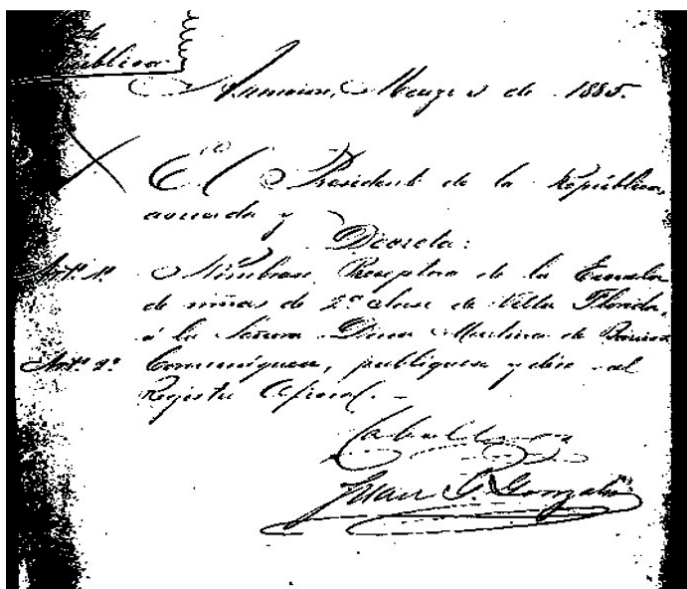 de
pública
Asuncion, Marzo 3 de 1885.
El Presidente de la República,
acuerda y
Decreta:
Art.º 1º Nómbrase Preceptora de la Escuela
de niñas de 2ª clase de Villa Florida,
á la Señora Martinez de
Art.º 2º Comuníquese, publíquese y dése al
Registro Oficial. -
Caballero
Juan G. Gonzalez